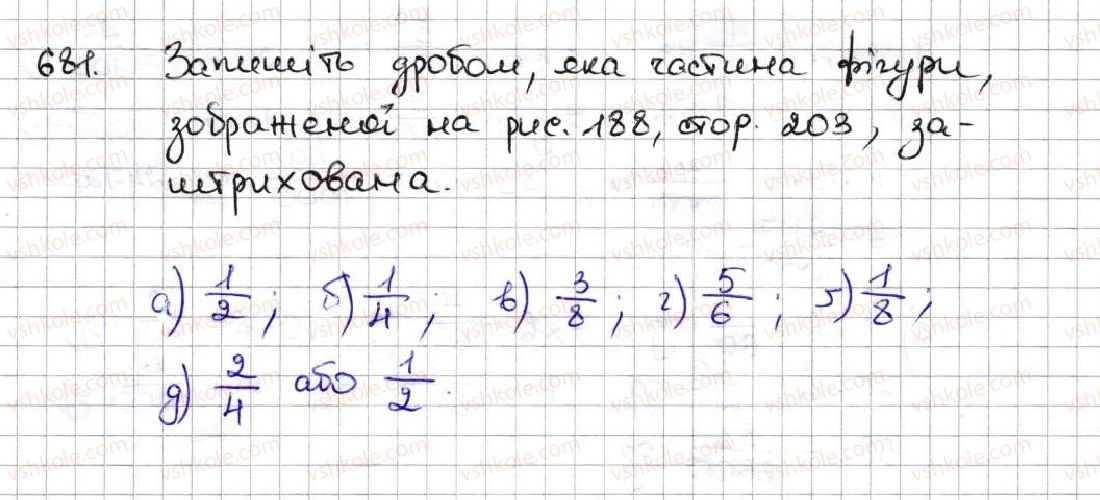 681. Запишіть дробом, яка частина фігури,
зображеної на рис. 188, стор. 203, за-
штрихована.
а) 1/2; б) 1/4; в) 3/8; г) 5/6; ґ) 1/8;
д) 2/4 або 1/2.